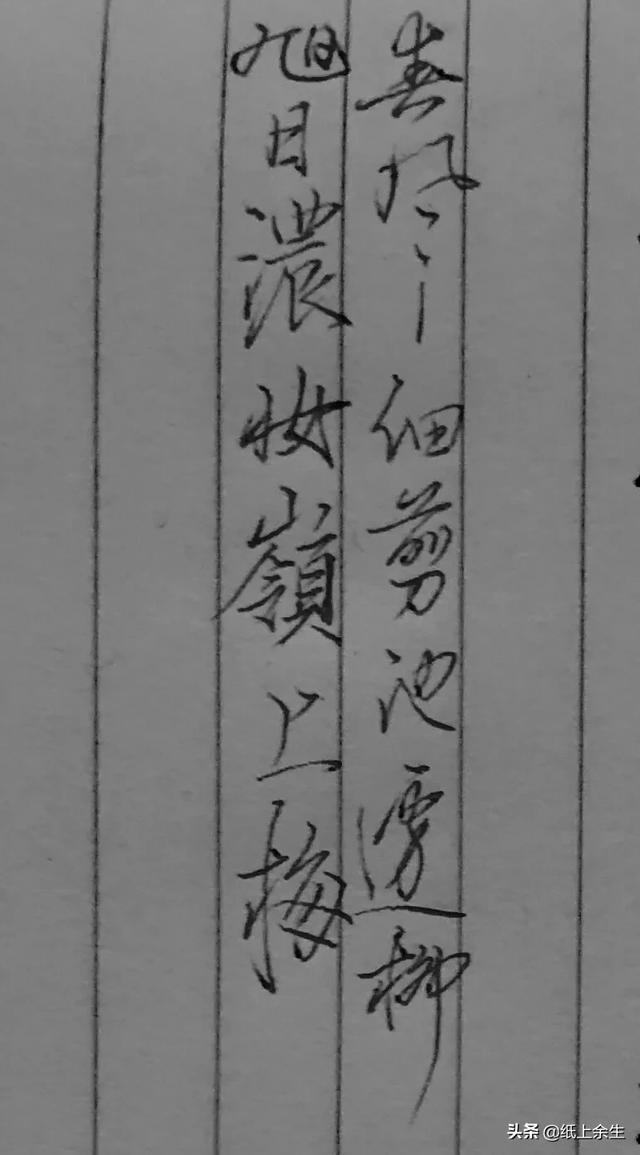 春风细剪池邊柳
旭日濃妆嶺上梅
头条 @纸上余生